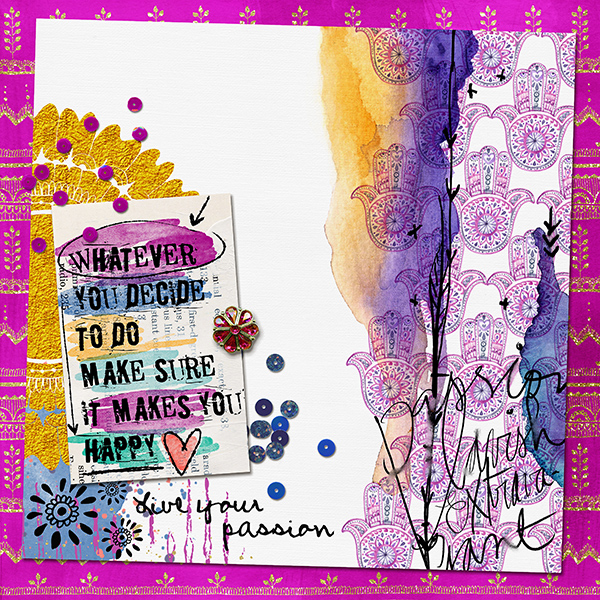 WHATEVER
YOU DECIDE
TO DO
MAKE SURE
IT MAKES YOU
HAPPY
live your
passion
passion
lavish
extrava-
gant